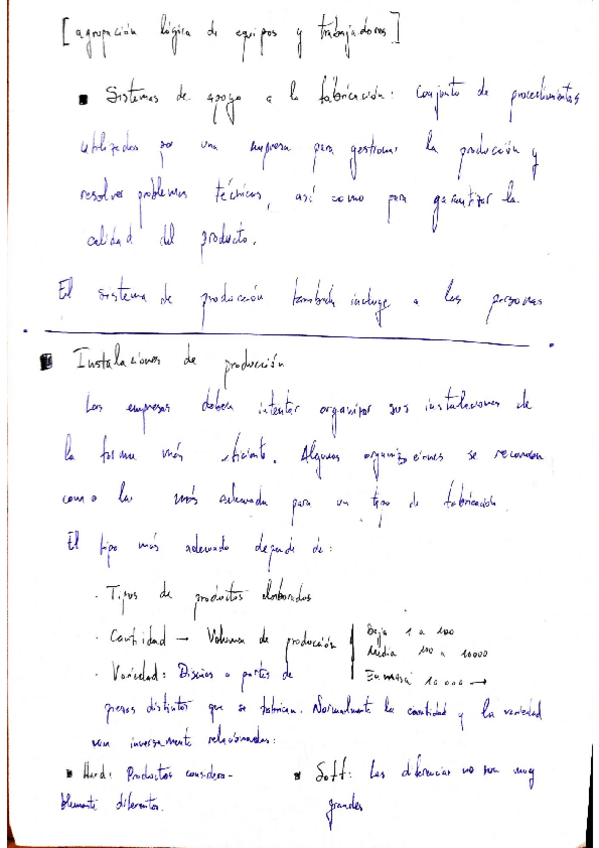 [agrupación lógica de equipos y trabajadores]
▪ Sistemas de apoyo a la fabricación: conjunto de procedimientos
utilizados por una empresa para gestionar la producción y
resolver problemas técnicos, así como para garantizar la
calidad del producto.
El sistema de producción también incluye a las personas
▪ Instalaciones de producción
Las empresas deben intentar organizar sus instalaciones de
la forma más eficiente. Algunas organizaciones se reconocen
como las más adecuada para un tipo de fabricación
El tipo más adecuado depende de:
· Tipos de productos elaborados
· Cantidad → Volumen de producción
Baja 1 a 100
Media 100 a 10000
En masa 10000 →
· Variedad: Diseños o partes de
piezas distintas que se fabrican. Normalmente la cantidad y la variedad
son inversamente relacionadas:
▪ Hard: Productos considera-
blemente diferentes.
▪ Soft: Las diferencias no son muy
grandes